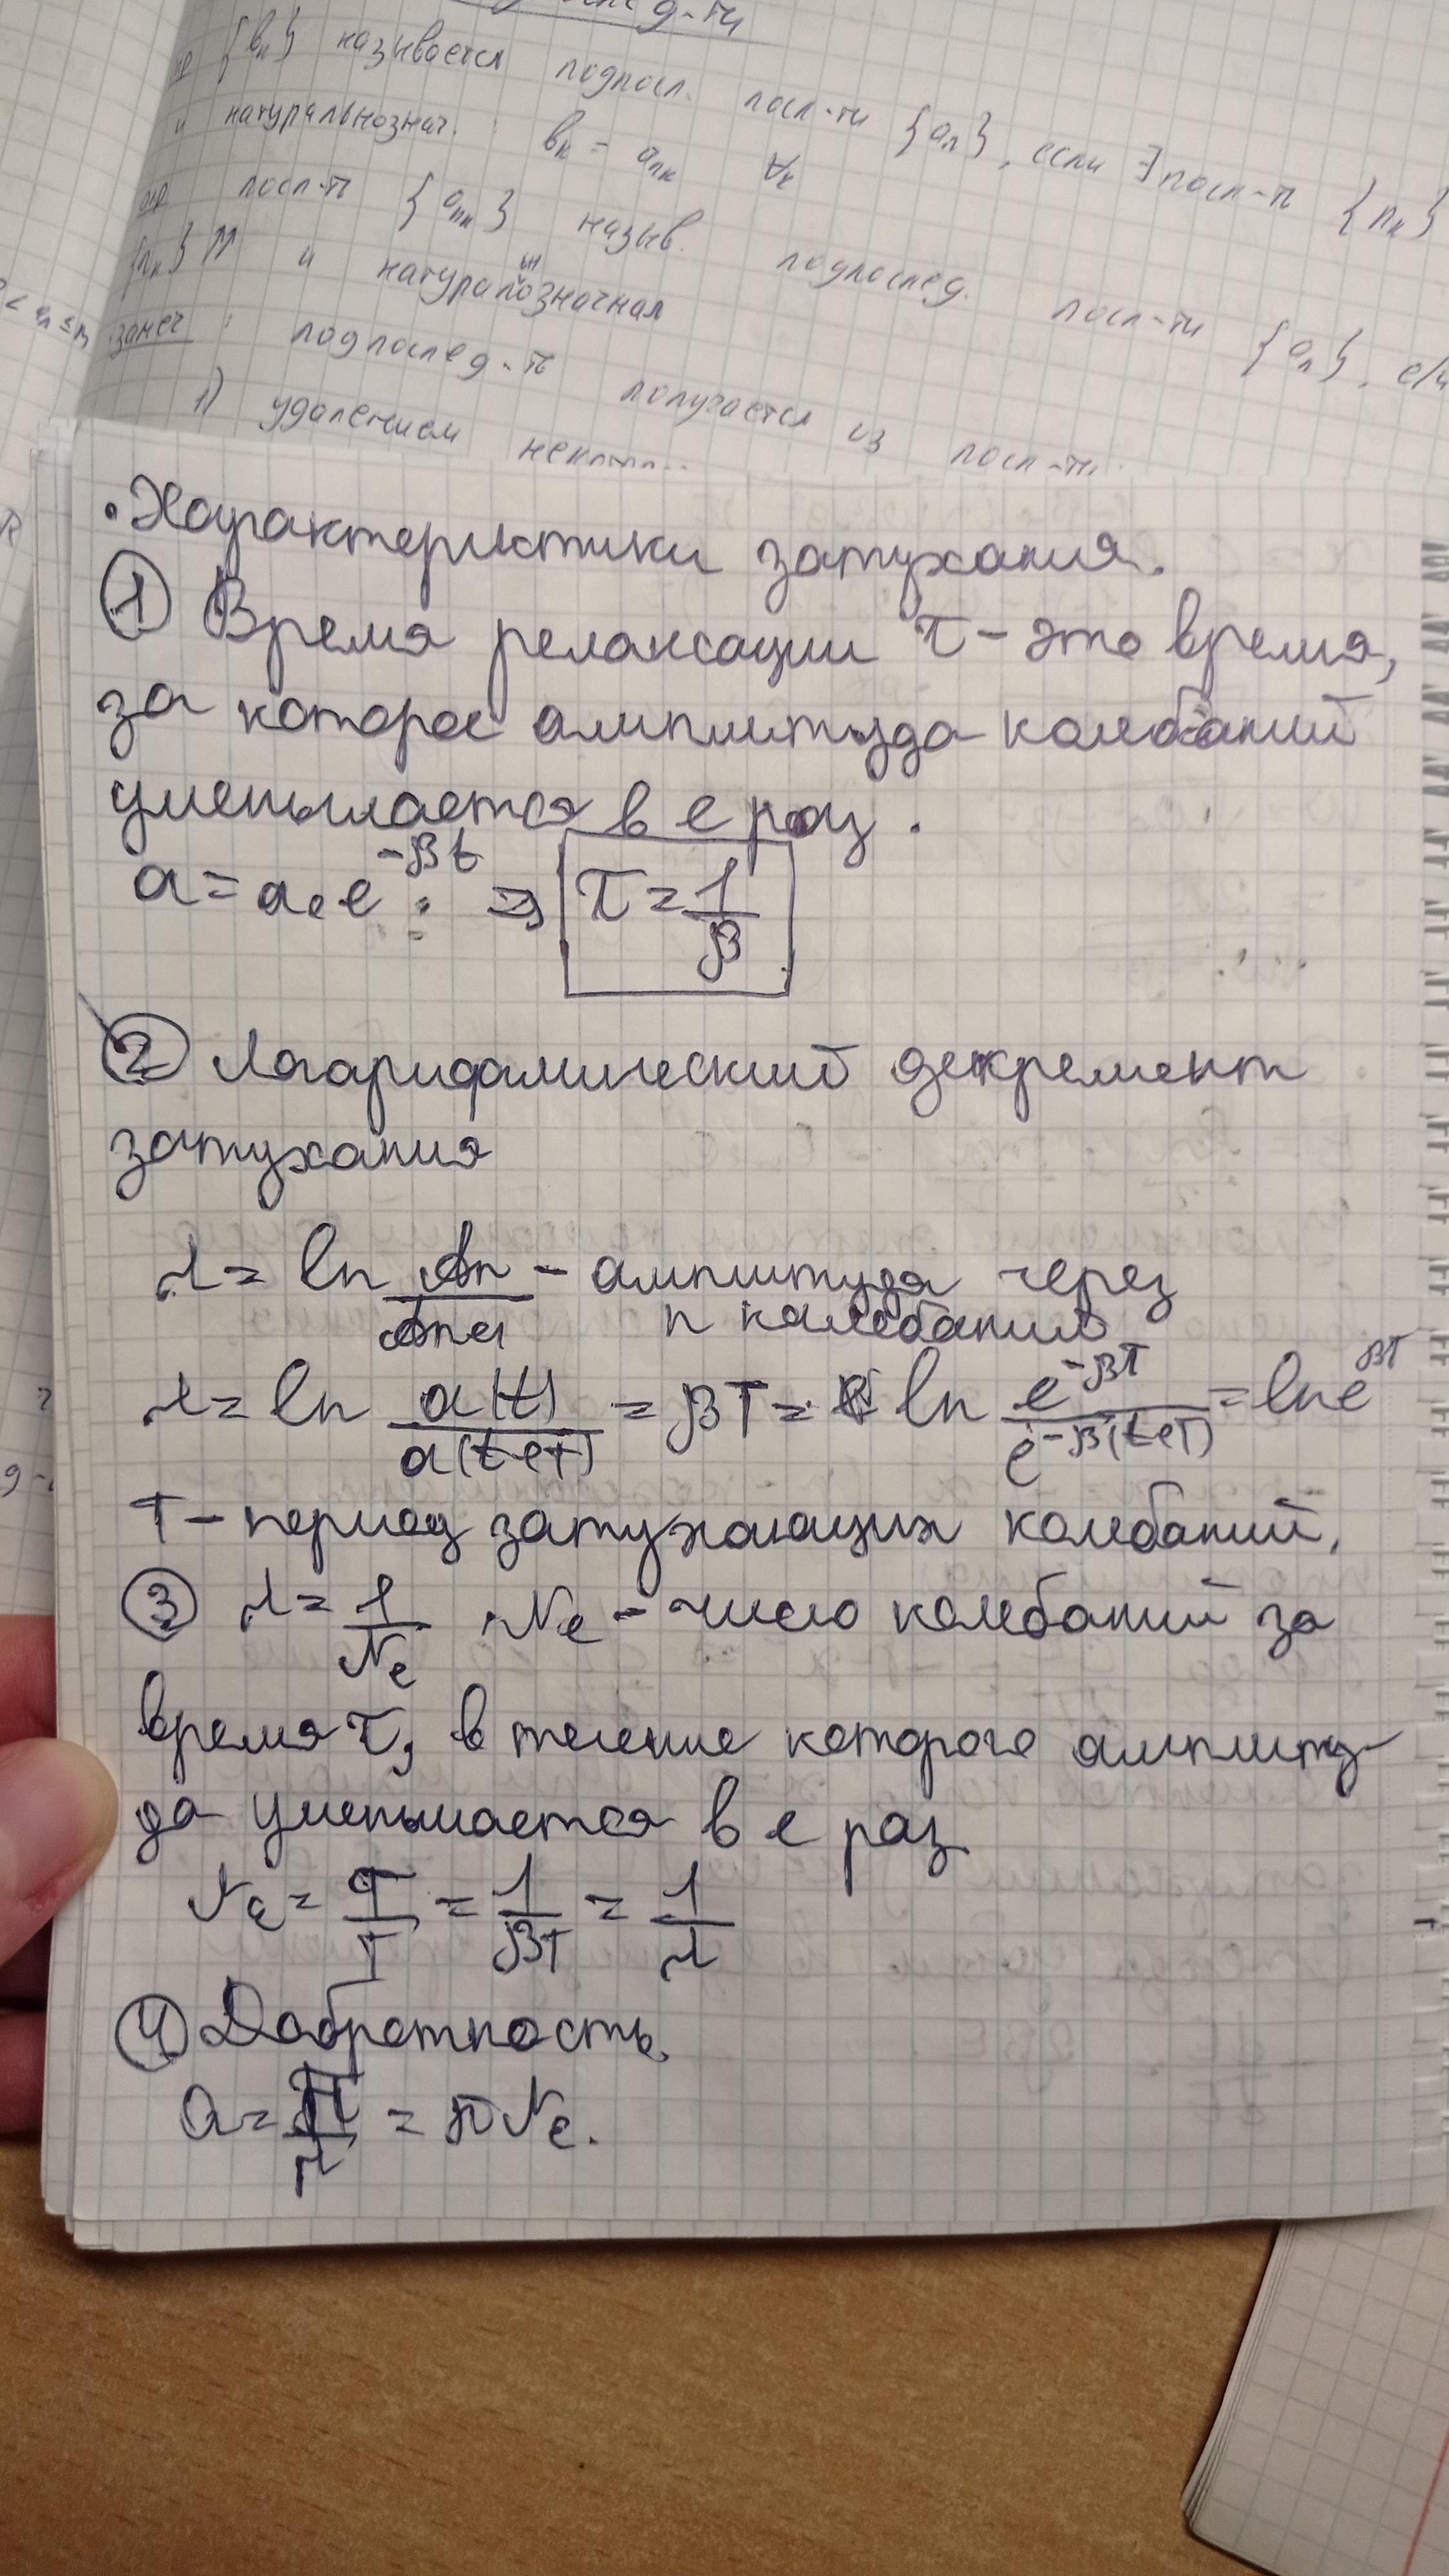 {bк} называется подпосл. посл-ти {an}, если ∃ посл-ть {nк}
и натуральнознач. : bк = anк ∀к
опр посл-ть {anк} назыв. подпослед. посл-ти {an}, е/и
{nк} ↑↑ и натуральнозначная
замеч : подпослед-ть получается из посл-ти
1) удалением
• Характеристики затухания.
① Время релаксации τ – это время,
за которое амплитуда колебаний
уменьшается в e раз.
a = a₀e^(-βt) ; ⇒ τ = 1/β
② Логарифмический декремент
затухания
λ = ln An/An+1 – амплитуда через
n колебаний
λ = ln a(t)/a(t+T) = βT = ln e^(-βT)/e^(-β(t+T)) = ln e^(βT)
T – период затухающих колебаний.
③ λ = 1/Ne Ne – число колебаний за
время τ, в течение которого амплиту-
да уменьшается в e раз
Ne = τ/T = 1/βT = 1/λ
④ Добротность.
Q = π/λ = πNe.